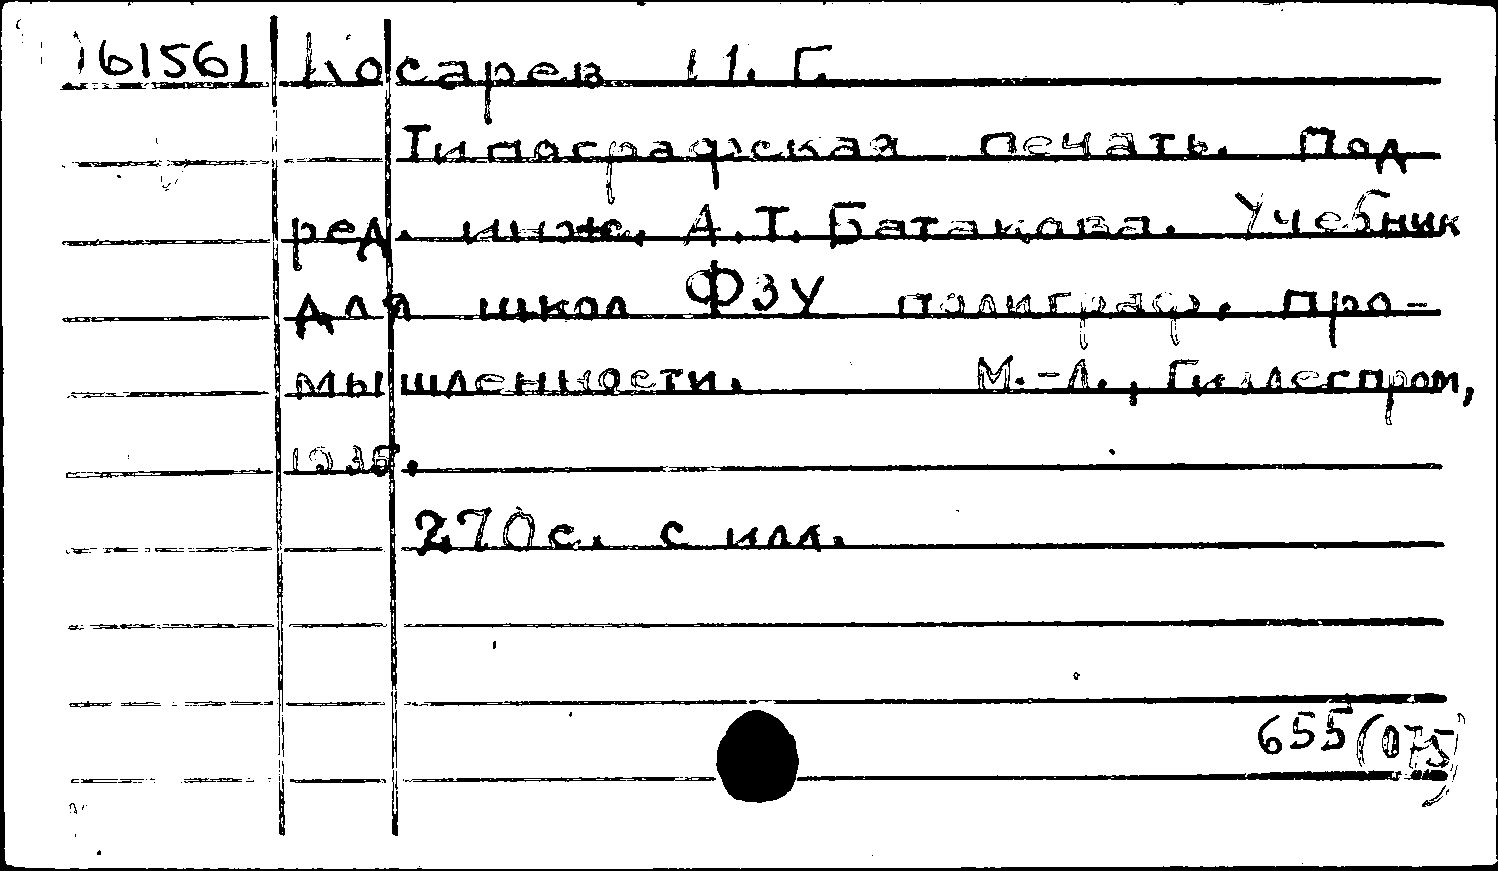 161561 Косарев И. Г.
Типографская печать. Под
ред. инж. А. Т. Батакова. Учебник
для школ ФЗУ полиграф. про-
мышленности. М.-Л., Гизлегпром,
1935.
270 с. с илл.
655(075)